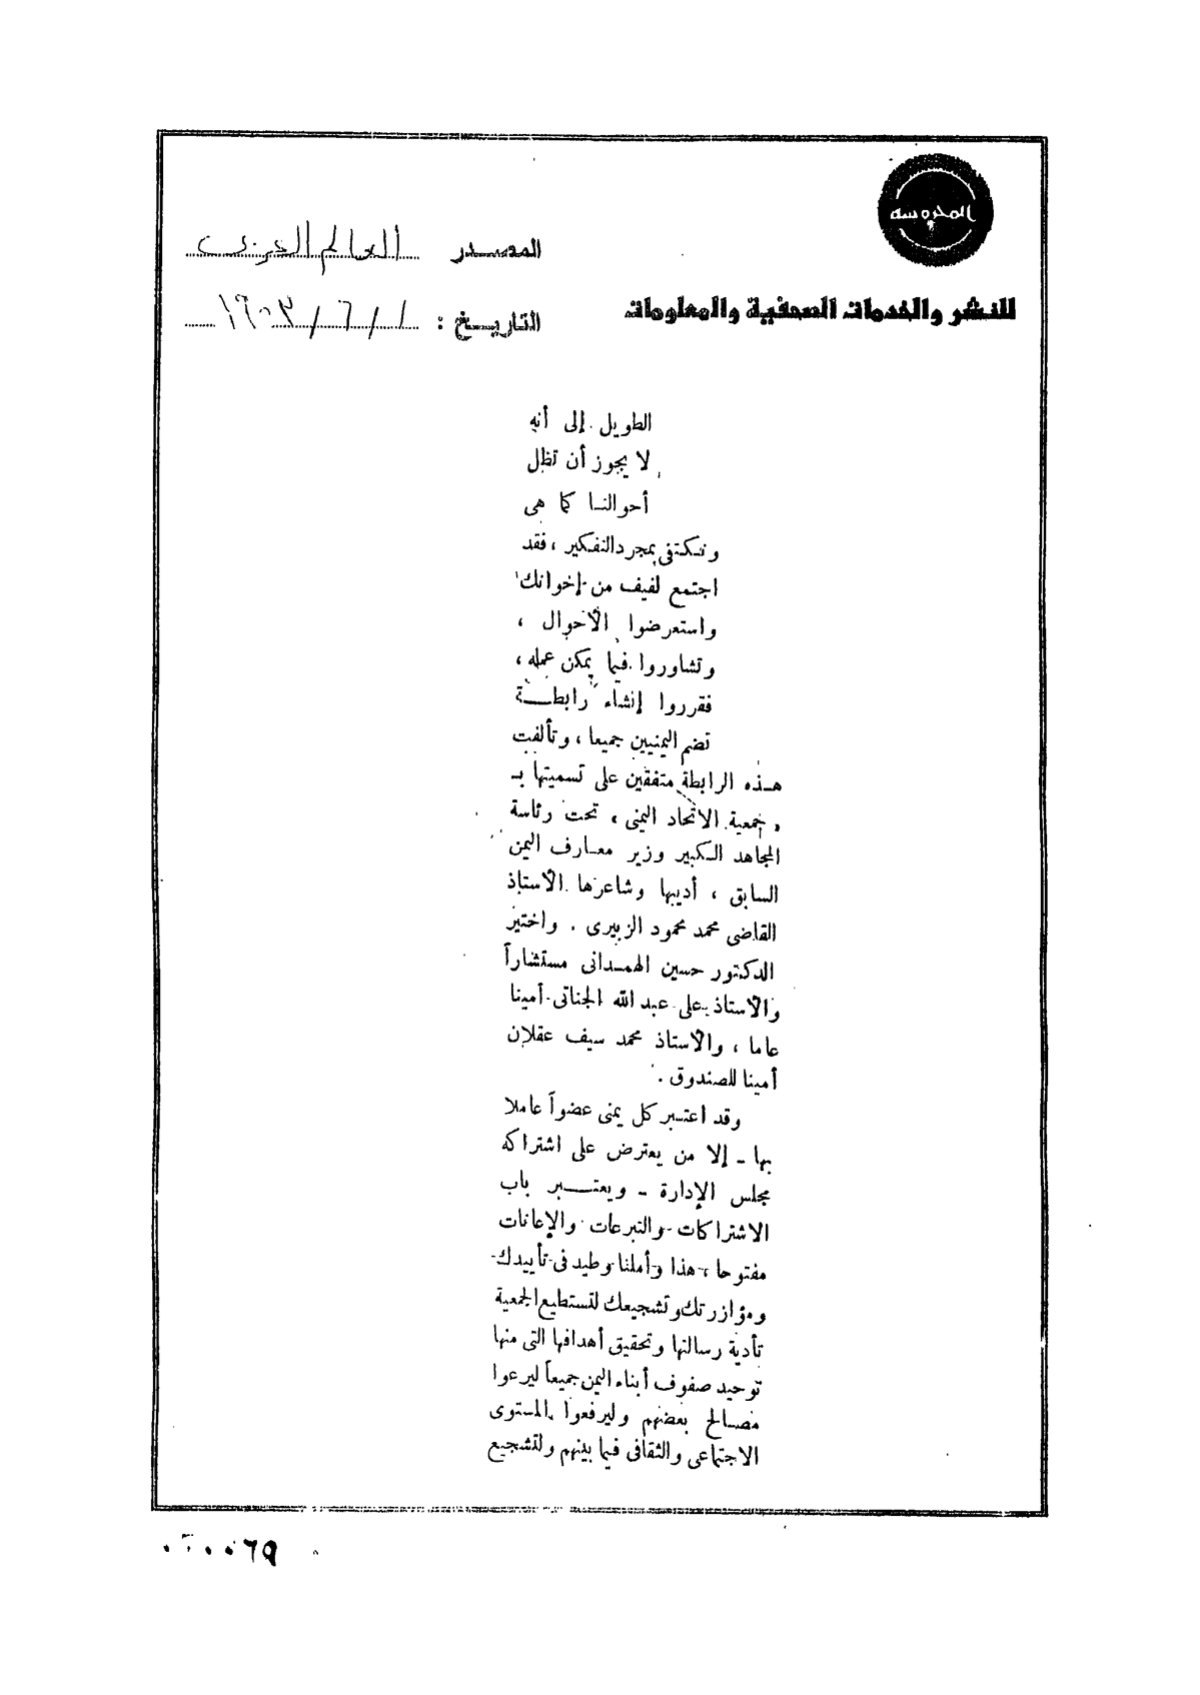 المحروسة
للنشر والخدمات الصحفية والمعلومات
المصدر العالم العربى
التاريخ : ١ / ٦ / ١٩٥٣
الطويل إلى أنه
لا يجوز أن تظل
أحوالنا كما هى
ونكتفى بمجرد التفكير ، فقد
اجتمع لفيف من إخوانك
واستعرضوا الأحوال ،
وتشاوروا فيما يمكن عمله ،
فقرروا إنشاء رابطة
تضم اليمنيين جميعا ، وتألفت
هذه الرابطة متفقين على تسميتها بـ
« جمعية الاتحاد اليمنى » تحت رئاسة
المجاهد الكبير وزير معارف اليمن
السابق ، أديبها وشاعرها الأستاذ
القاضى محمد محمود الزبيرى . واختير
الدكتور حسين الهمدانى مستشاراً
والأستاذ على عبد الله الجناتى أمينا
عاما ، والأستاذ محمد سيف عقلان
أمينا للصندوق .
وقد اعتبر كل يمنى عضواً عاملا
بها - إلا من يعترض على اشتراكه
مجلس الإدارة - ويعتبر باب
الاشتراكات والتبرعات والإعانات
مفتوحا ، هذا وأملنا وطيد فى تأييدك
ومؤازرتك وتشجيعك لتستطيع الجمعية
تأدية رسالتها وتحقيق أهدافها التى منها
توحيد صفوف أبناء اليمن جميعاً ليرعوا
مصالح بعضهم وليرفعوا المستوى
الاجتماعى والثقافى فيما بينهم ولتشجيع